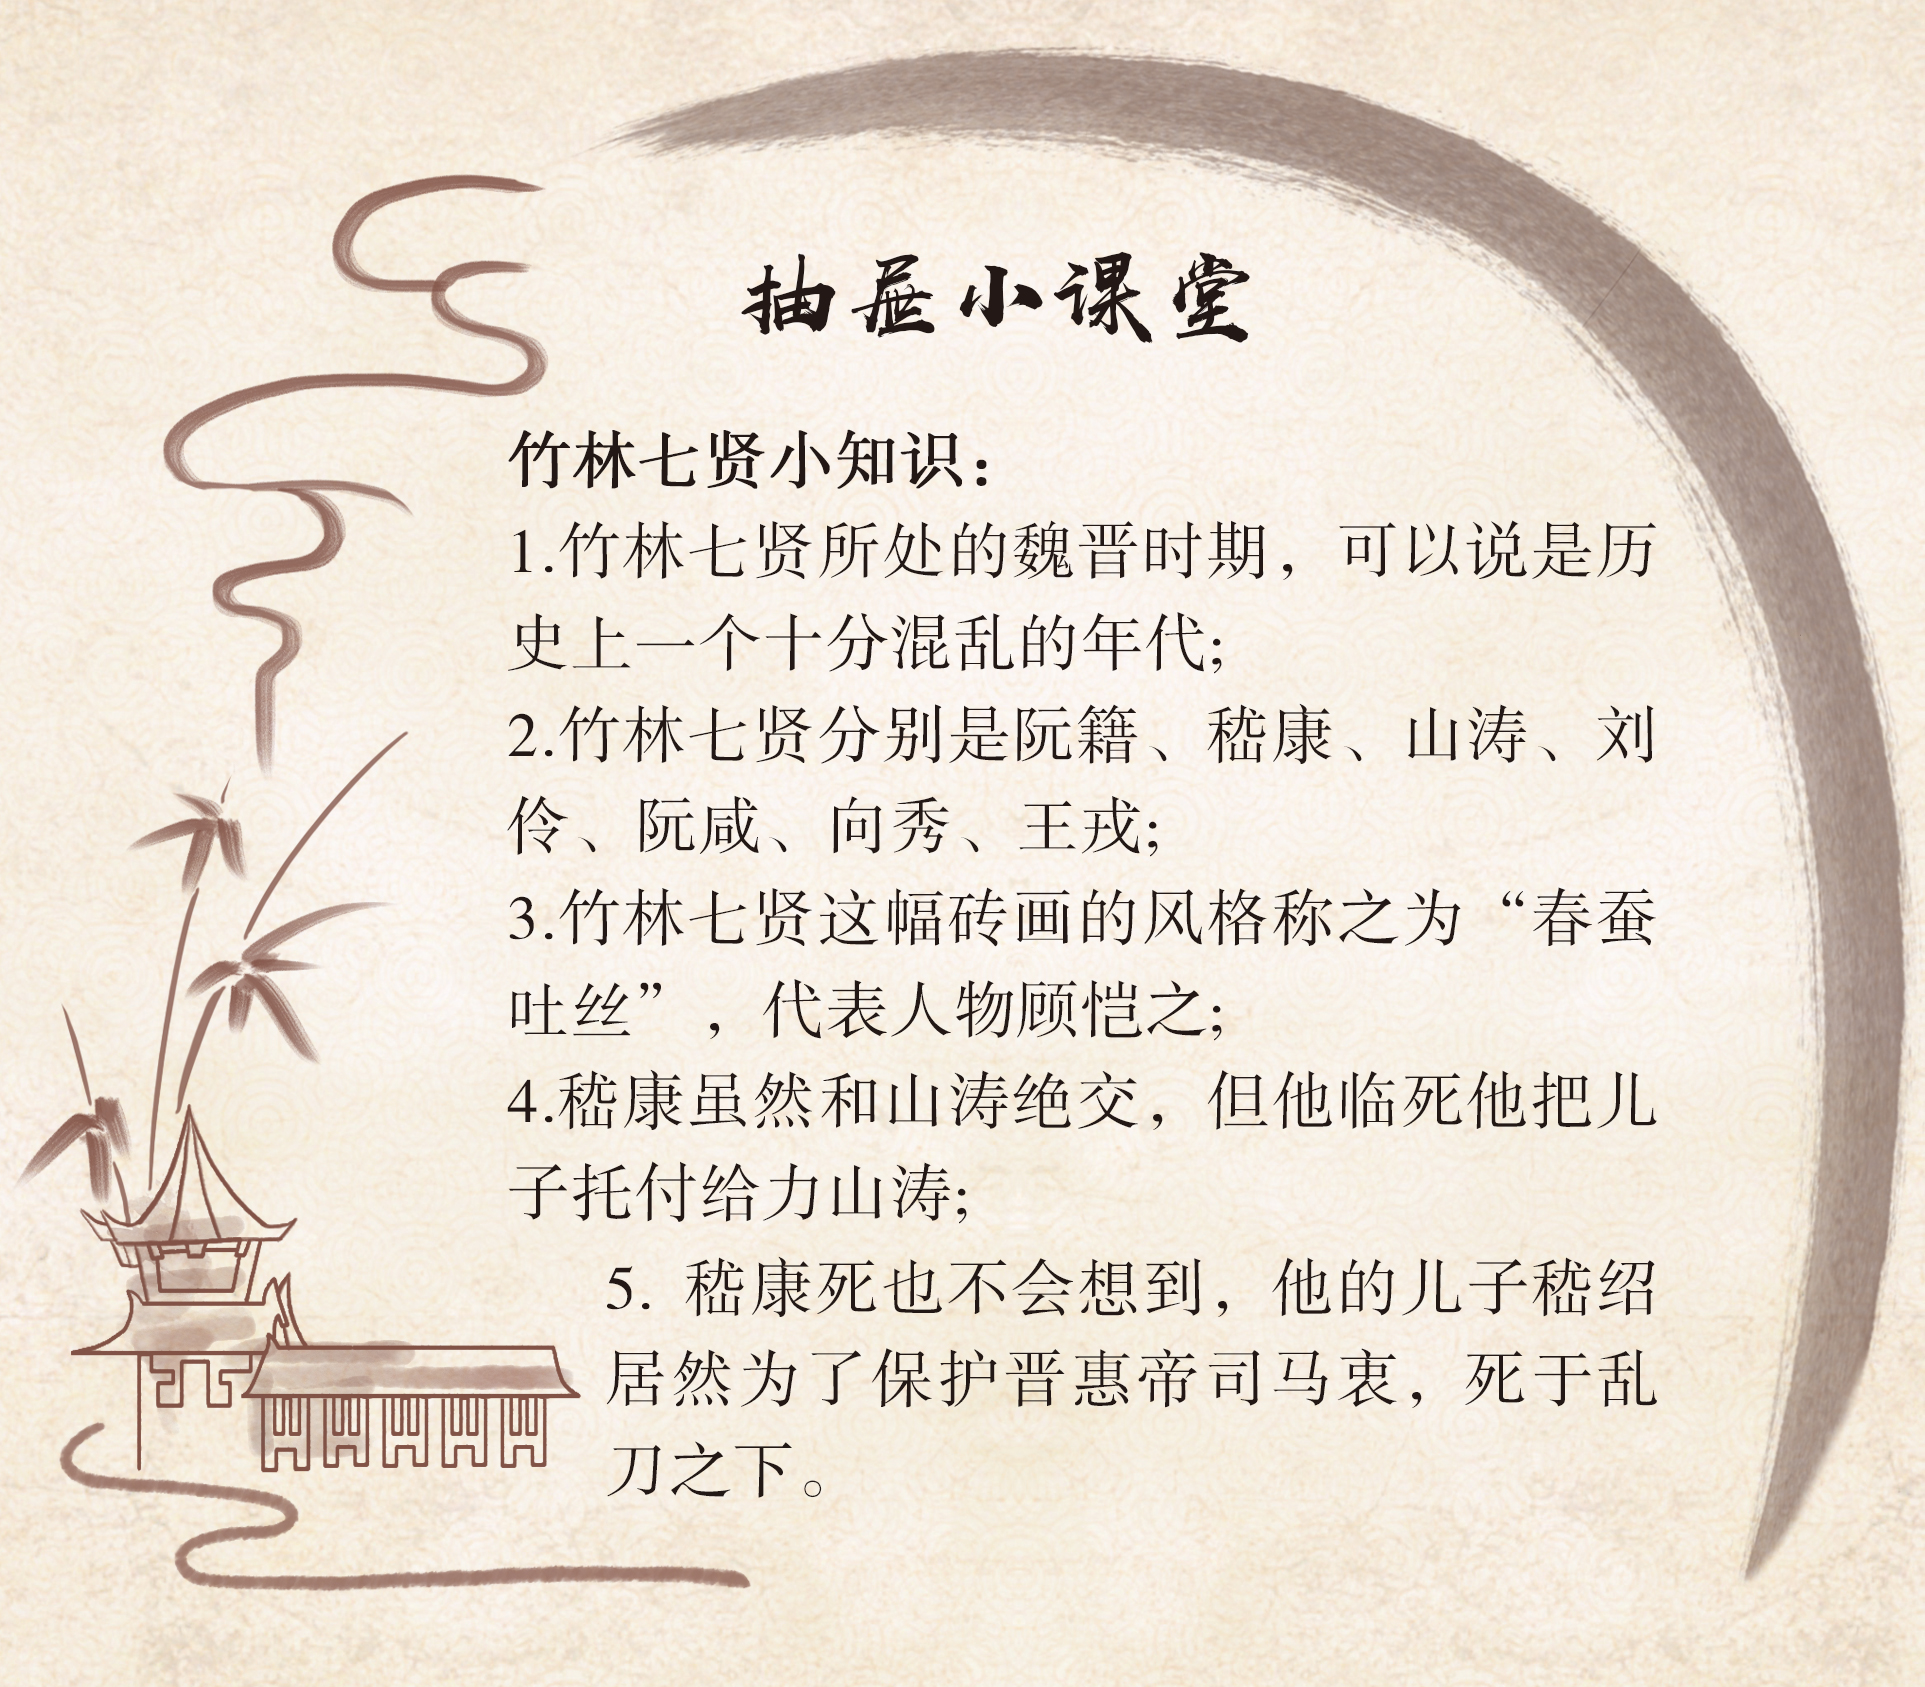 抽屉小课堂
竹林七贤小知识：
1.竹林七贤所处的魏晋时期，可以说是历
史上一个十分混乱的年代；
2.竹林七贤分别是阮籍、嵇康、山涛、刘
伶、阮咸、向秀、王戎；
3.竹林七贤这幅砖画的风格称之为“春蚕
吐丝”，代表人物顾恺之；
4.嵇康虽然和山涛绝交，但他临死他把儿
子托付给力山涛；
5. 嵇康死也不会想到，他的儿子嵇绍
居然为了保护晋惠帝司马衷，死于乱
刀之下。